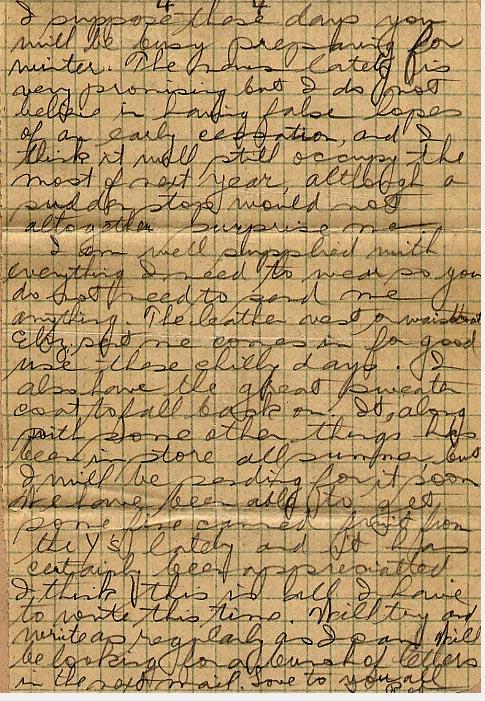 4 4
I suppose these days you
will be busy preparing for
winter. The news lately is
very promising but I do not
believe in having false hopes
of an early cessation, and I
think it will still occupy the
most of next year, although a
sudden stop would not
altogether surprise me.
I am well supplied with
everything I need to wear so you
do not need to send me
anything. The leather vest or waistcoat
Eliz. sent me comes in for good
use these chilly days. I
also have the great sweater
coat to fall back on. It, along
with some other things has
been in store all summer but
I will be sending for it soon
We have been able to get
some fine canned fruit from
the Y's lately and it has
certainly been appreciated
I think this is all I have
to write this time. Will try and
write as regularly as I can Will
be looking for a bunch of letters
in the next mail. Love to you all